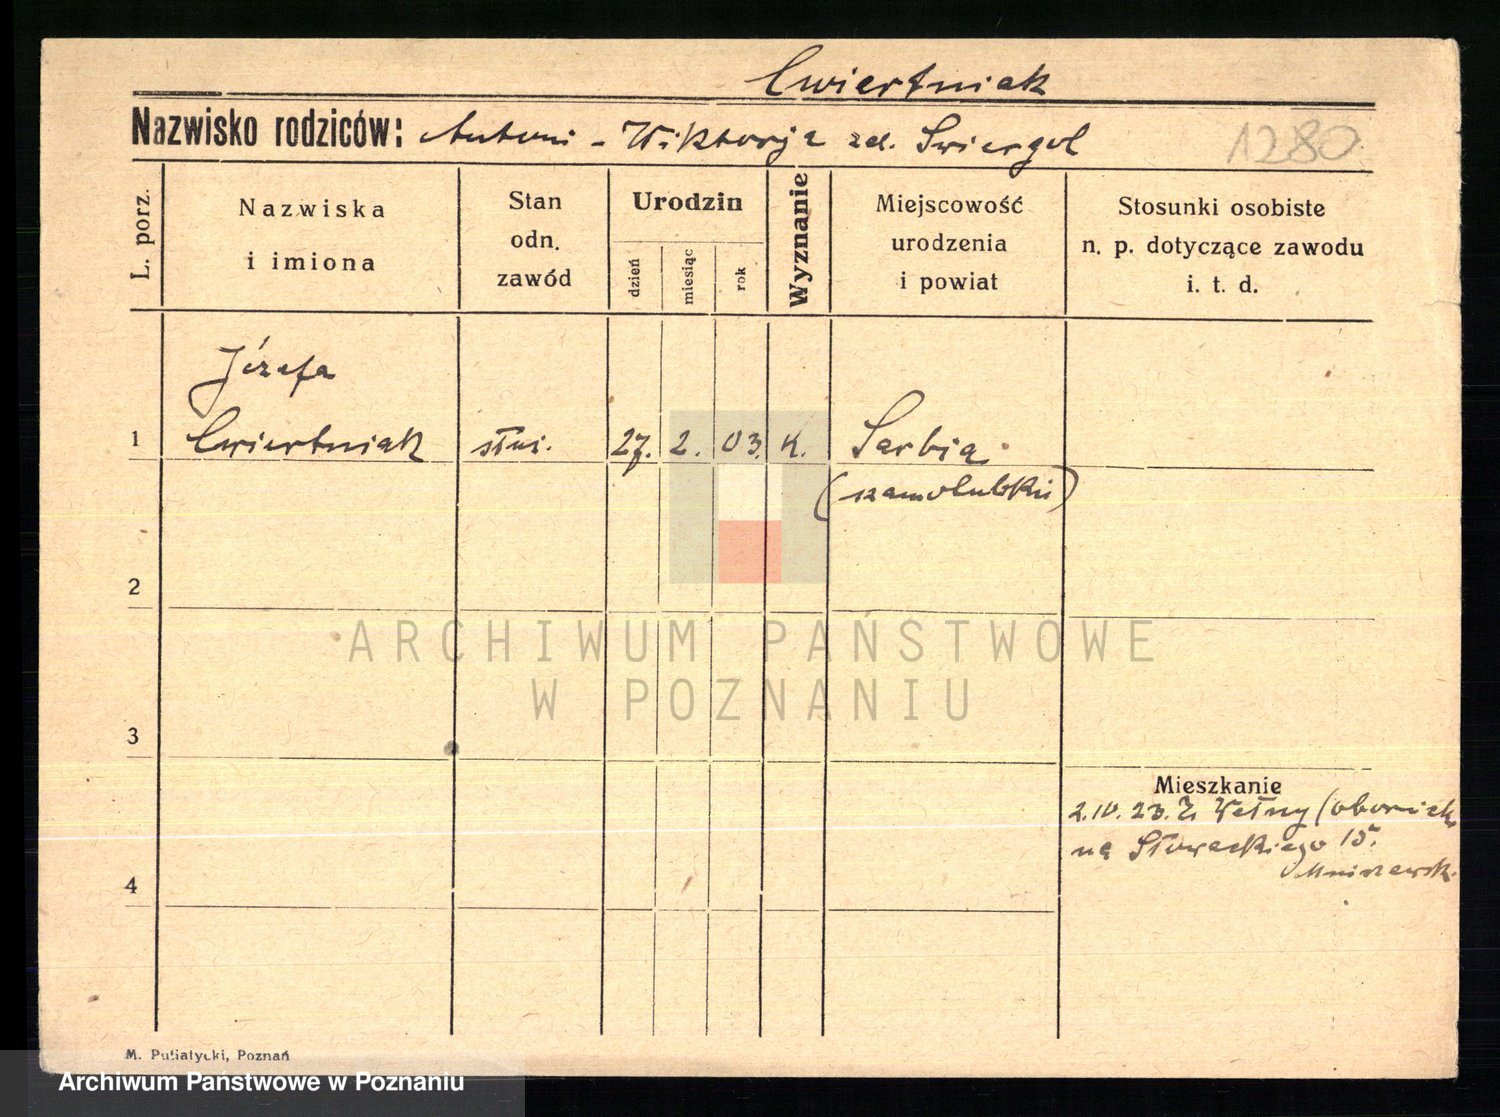 Cwiertniak
Nazwisko rodziców: Antoni - Wiktorja zd. Swiergol
1280
L. porz.
Nazwiska
i imiona
Stan
odn.
zawód
Urodzin
dzień
miesiąc
rok
Wyznanie
Miejscowość
urodzenia
i powiat
Stosunki osobiste
n. p. dotyczące zawodu
i. t. d.
Józefa
1 Cwiertniak służ. 27. 2. 03. K. Sarbia
(szamotulski)
2
ARCHIWUM PAŃSTWOWE
W POZNANIU
3
Mieszkanie
2.10.23. Z Wełny (obornick.
na Słowackiego 15.
Mniszewsk.
4
M. Putiatycki, Poznań
Archiwum Państwowe w Poznaniu